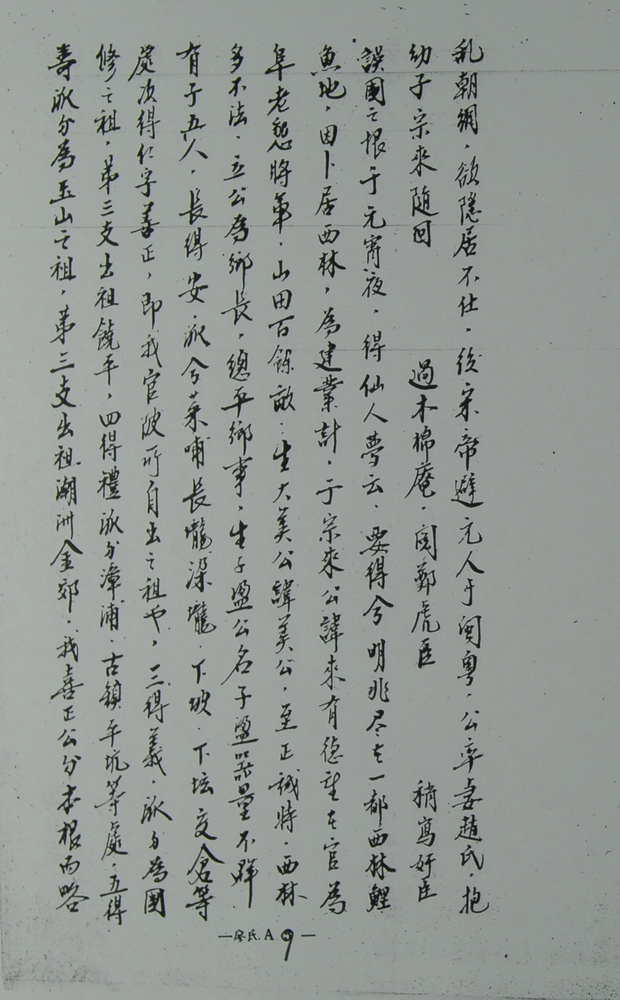 乱朝綱，欲隱居不仕，後宋帝避元人于闽粤，公率妻趙氏，抱
幼子宗來隨回　過木棉庵，闵鄭虎臣　稍寫奸臣
誤國之恨于元宵夜，得仙人夢云，要得今明兆尽去一都西林鯉
魚地，因卜居西林，為建業計，于宗來公諱來有德望去官為
阜老懋將軍，山田百餘畝，生大美公諱美公，至正誠時，西林
多不法，立公為鄉長，總平鄉事，生子盈公名子盈器量不群，
有子五人，長得安，派今菜哺長壠梁壠，下坡，下坛交倉等
處次得仁字善正，即我官陂所自出之祖也，三得義，派分為国
修之祖，第三支出祖饒平，四得禮派分漳浦，古鎮平坑等處，五得
壽派分為玉山之祖，第三支出祖潮洲金郊，我喜正公分本根而略
—廖氏.A 9—